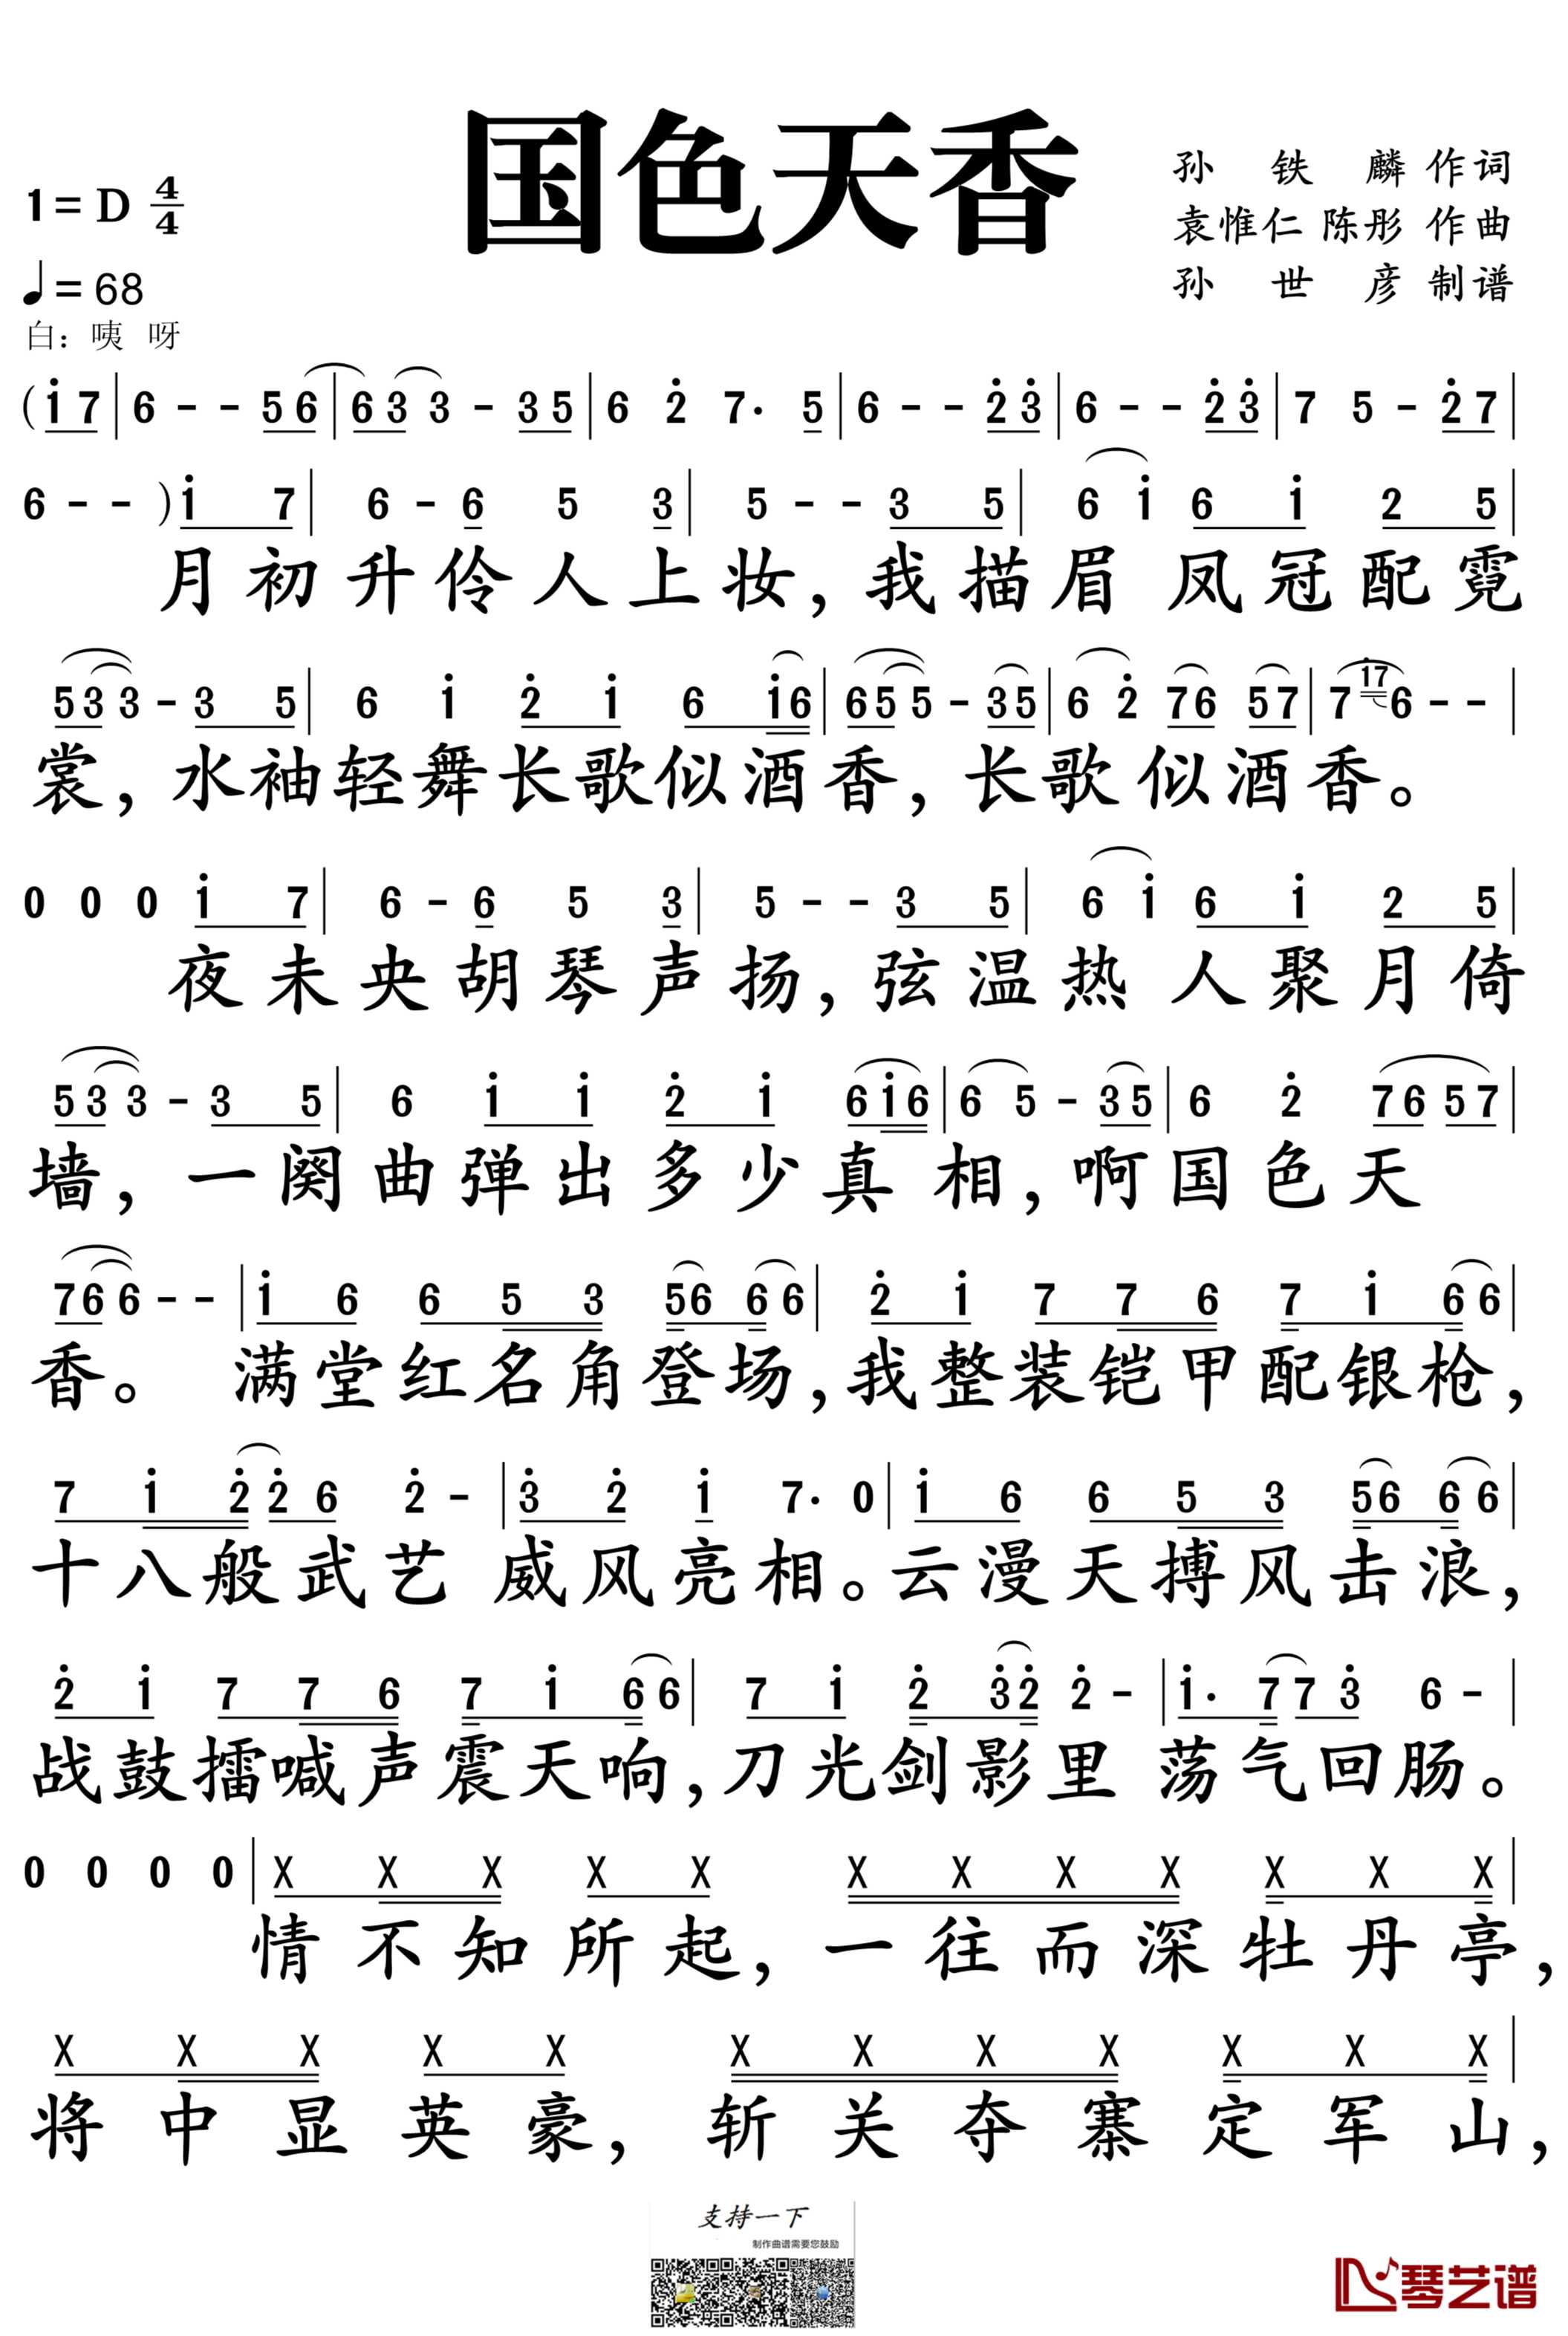 国色天香
孙 铁 麟 作词
1= D 4/4
袁惟仁 陈彤 作曲
♩= 68
孙 世 彦 制谱
白：咦 呀
(i 7 | 6 - - 5 6 | 6 3 3 - 3 5 | 6 2̇ 7· 5 | 6 - - 2̇ 3̇ | 6 - - 2̇ 3̇ | 7 5 - 2̇ 7 |
6 - - ) i 7 | 6 - 6 5 3 | 5 - - 3 5 | 6 i 6 i 2 5 |
月初升伶人上妆，我描眉 凤冠配霓
5 3 3 - 3 5 | 6 i 2̇ i 6 i 6 | 6 5 5 - 3 5 | 6 2̇ 7 6 5 7 | 7 i 7 6 - - |
裳，水袖轻舞长歌似酒香，长歌似酒香。
0 0 0 i 7 | 6 - 6 5 3 | 5 - - 3 5 | 6 i 6 i 2 5 |
夜未央胡琴声扬，弦温热 人聚月倚
5 3 3 - 3 5 | 6 i i 2̇ i 6 i 6 | 6 5 - 3 5 | 6 2̇ 7 6 5 7 |
墙，一阕曲弹出多少真 相，啊国色天
7 6 6 - - | i 6 6 5 3 5 6 6 6 | 2̇ i 7 7 6 7 i 6 6 |
香。 满堂红名角登场，我整装铠甲配银枪，
7 i 2̇ 2̇ 6 2̇ - | 3̇ 2̇ i 7· 0 | i 6 6 5 3 5 6 6 6 |
十八般武艺 威风亮相。云漫天搏风击浪，
2̇ i 7 7 6 7 i 6 6 | 7 i 2̇ 3̇ 2̇ 2̇ - | i· 7 7 3̇ 6 - |
战鼓擂喊声震天响，刀光剑影里 荡气回肠。
0 0 0 0 | X X X X X X X X X X X X |
情不知所起，一往而深牡丹亭，
X X X X X X X X X X X X |
将中显英豪，斩关夺寨定军山，
支持一下
制作曲谱需要您鼓励
琴艺谱